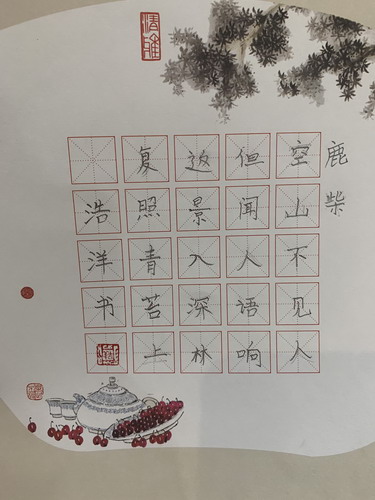 清雅
鹿柴
空山不见人
但闻人语响
返景入深林
复照青苔上
浩洋书